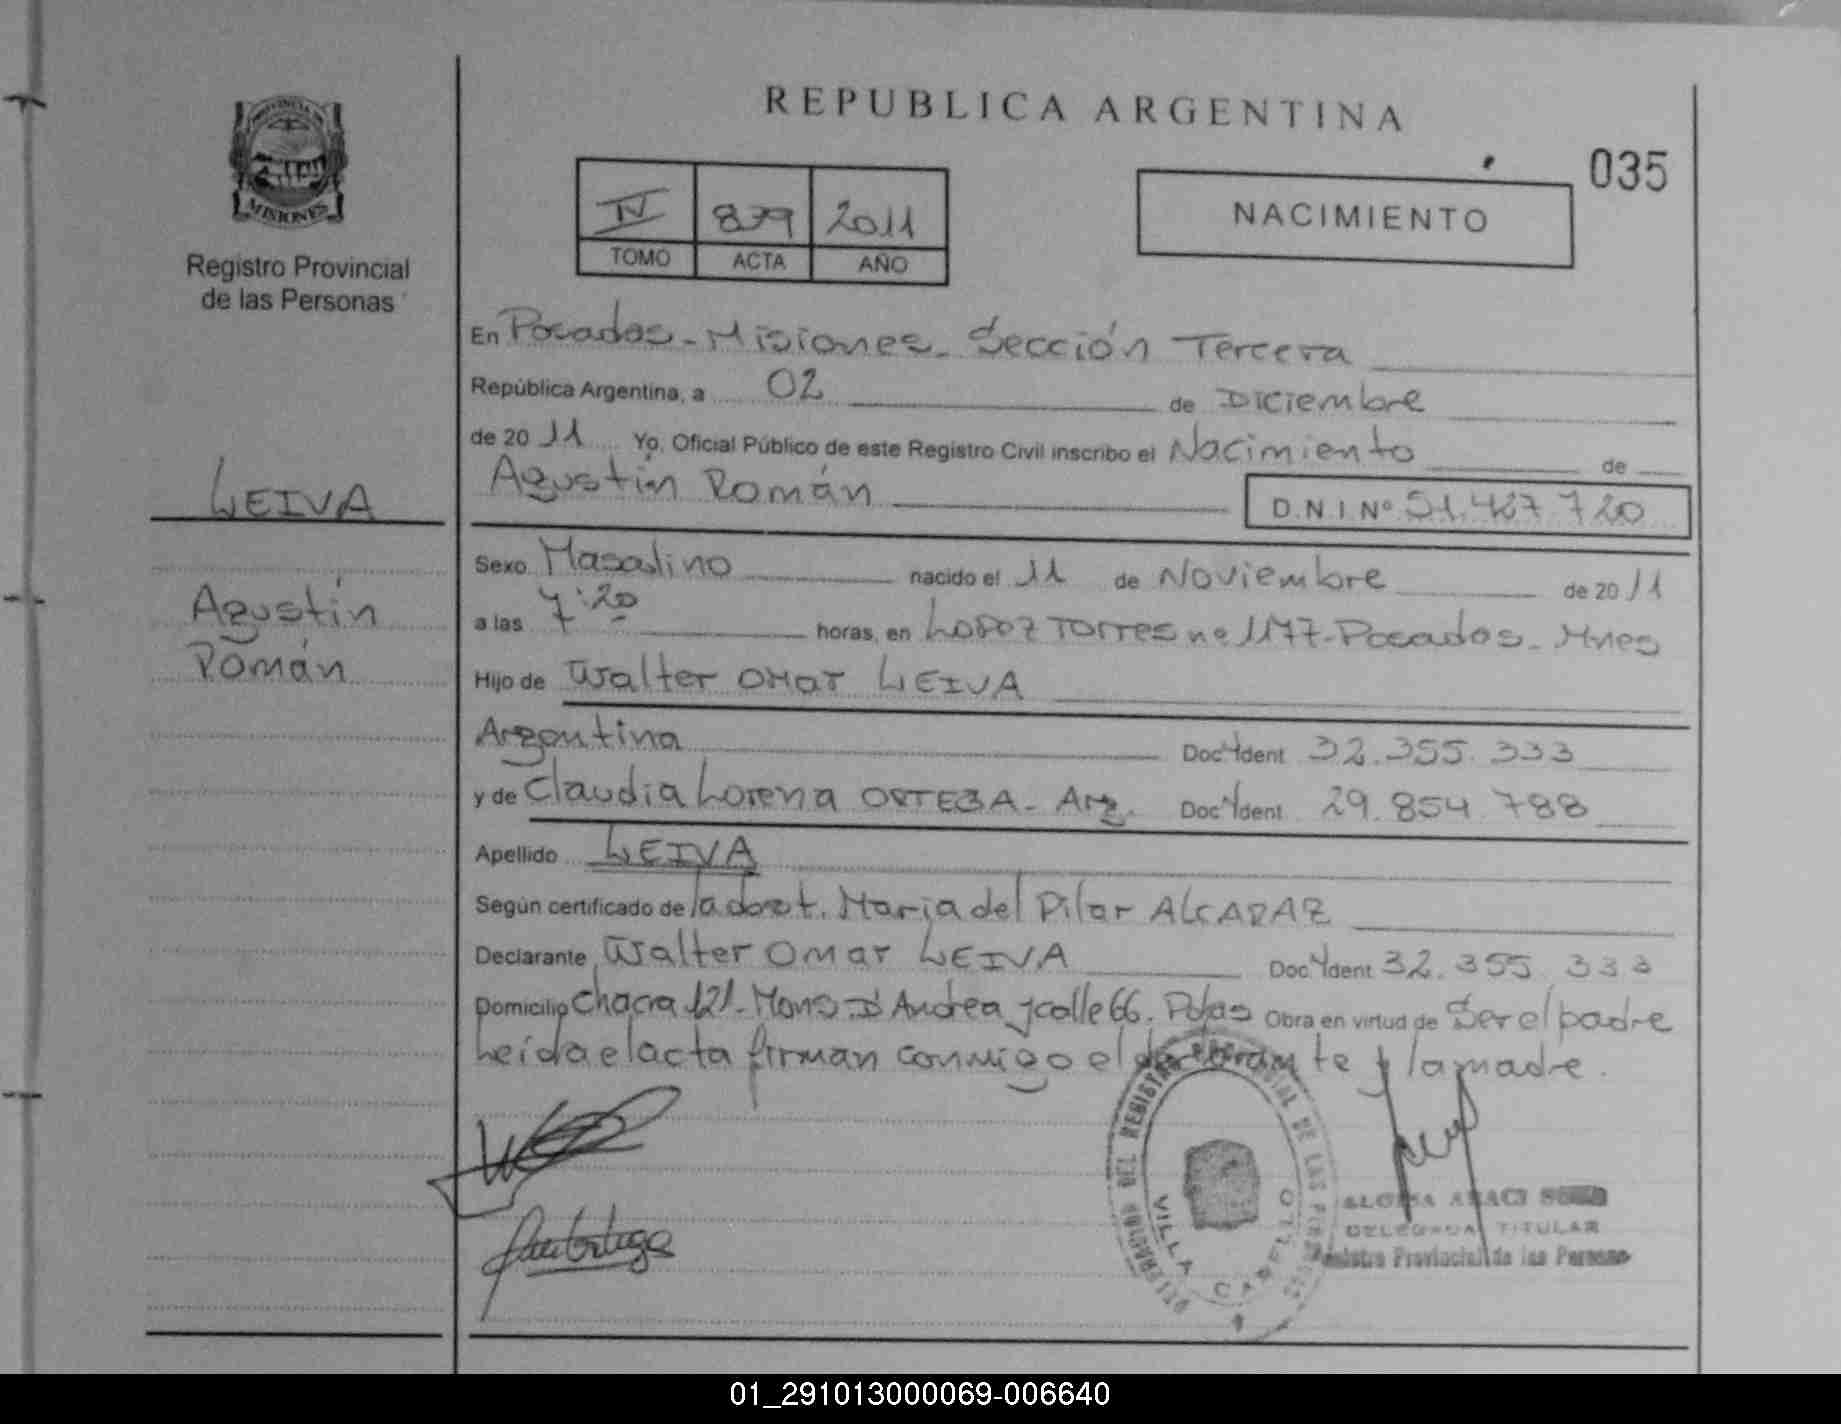 REPUBLICA ARGENTINA
035
MISIONES
Registro Provincial
de las Personas
IV 879 2011
TOMO ACTA AÑO
NACIMIENTO
En Posadas - Misiones - Sección Tercera
República Argentina, a 02 de Diciembre
de 20 11 Yo, Oficial Público de este Registro Civil inscribo el Nacimiento de
LEIVA
Agustín Román
D.N.I.Nº 51.427.720
Sexo Masculino nacido el 11 de Noviembre de 2011
Agustín
Román
a las 7:20 horas, en López Torres nº 1177 - Posadas - Mnes
Hijo de Walter Omar LEIVA
Argentina Doc. Ident. 32.355.333
y de Claudia Lorena ORTEGA - Arg. Doc. Ident. 29.854.788
Apellido LEIVA
Según certificado de la obst. María del Pilar ALCARAZ
Declarante Walter Omar LEIVA Doc. Ident. 32.355.333
Domicilio Chacra 121 - Mons. D'Andrea y calle 66. Pdas Obra en virtud de Ser el padre
Leída el acta firman conmigo el declarante y la madre.
DEL REGISTRO PROVINCIAL DE LAS
VILLA CABELLO
DELEGADA TITULAR
Registro Provincial de las Personas
01_291013000069-006640